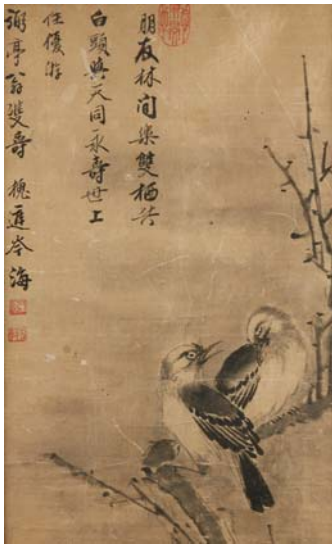 朋友林间樂雙栖共
白頭與天同一永壽世上
任優游
弼亭翁雙壽 槐岑海